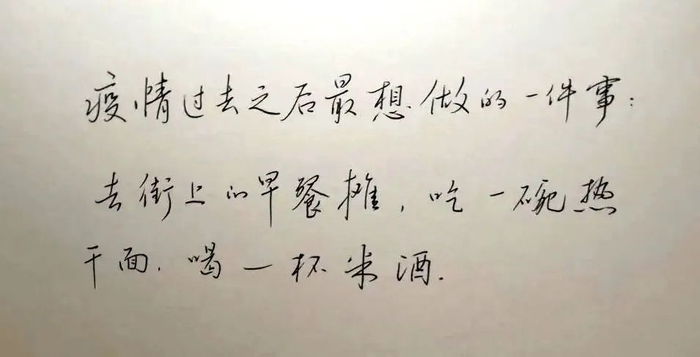 疫情过去之后最想做的一件事:
去街上的早餐摊,吃一碗热
干面.喝一杯米酒.